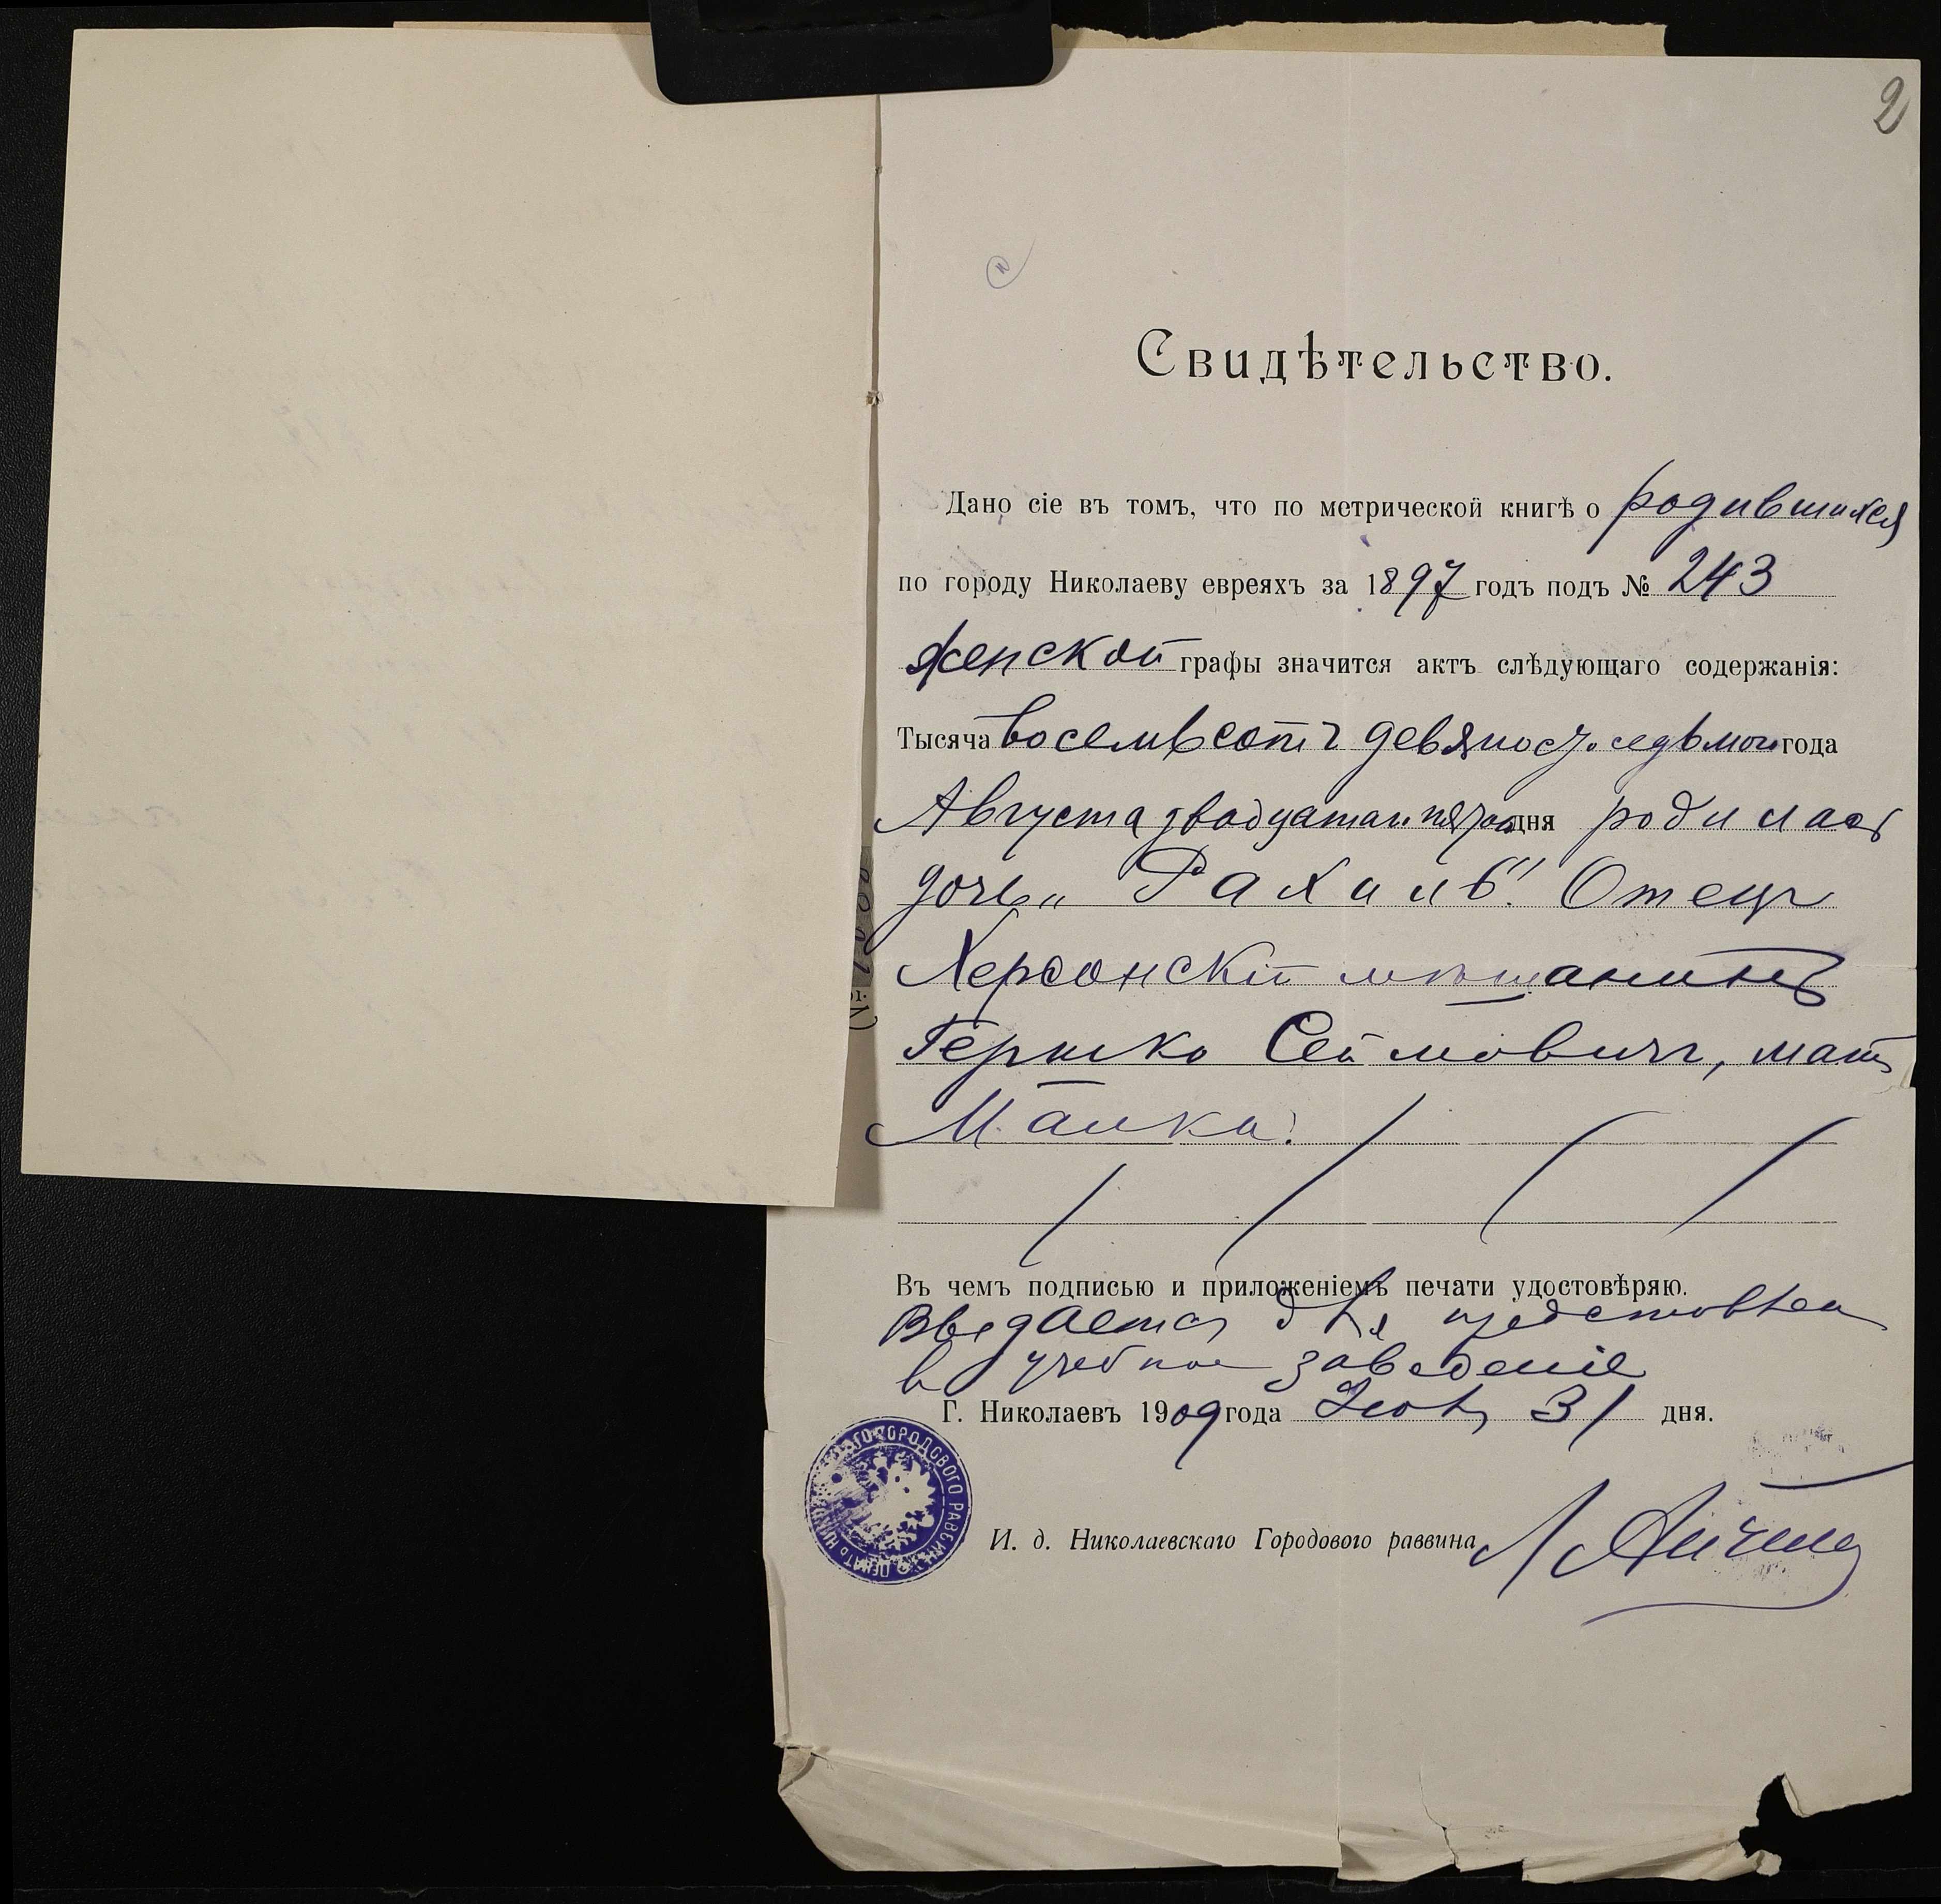 2
Свидѣтельство.
Дано сіе въ томъ, что по метрической книгѣ о родившихся
по городу Николаеву евреяхъ за 1897 годъ подъ № 243
женской графы значится актъ слѣдующаго содержанія:
Тысяча восемьсотъ девяносто седьмого года
Августа двадцатаго пятаго дня родилась
дочь „Рахиль". Отецъ
Херсонскій мѣщанинъ
Гершко Сеймовичъ, мать
Малка.
Въ чемъ подписью и приложеніемъ печати удостовѣряю.
Выдается для представленія
в учебное заведеніе
Г. Николаевъ 1909 года 31 дня.
ГОРОДОВОГО РАВВИНА ПЕЧАТЬ
И. д. Николаевскаго Городового раввина